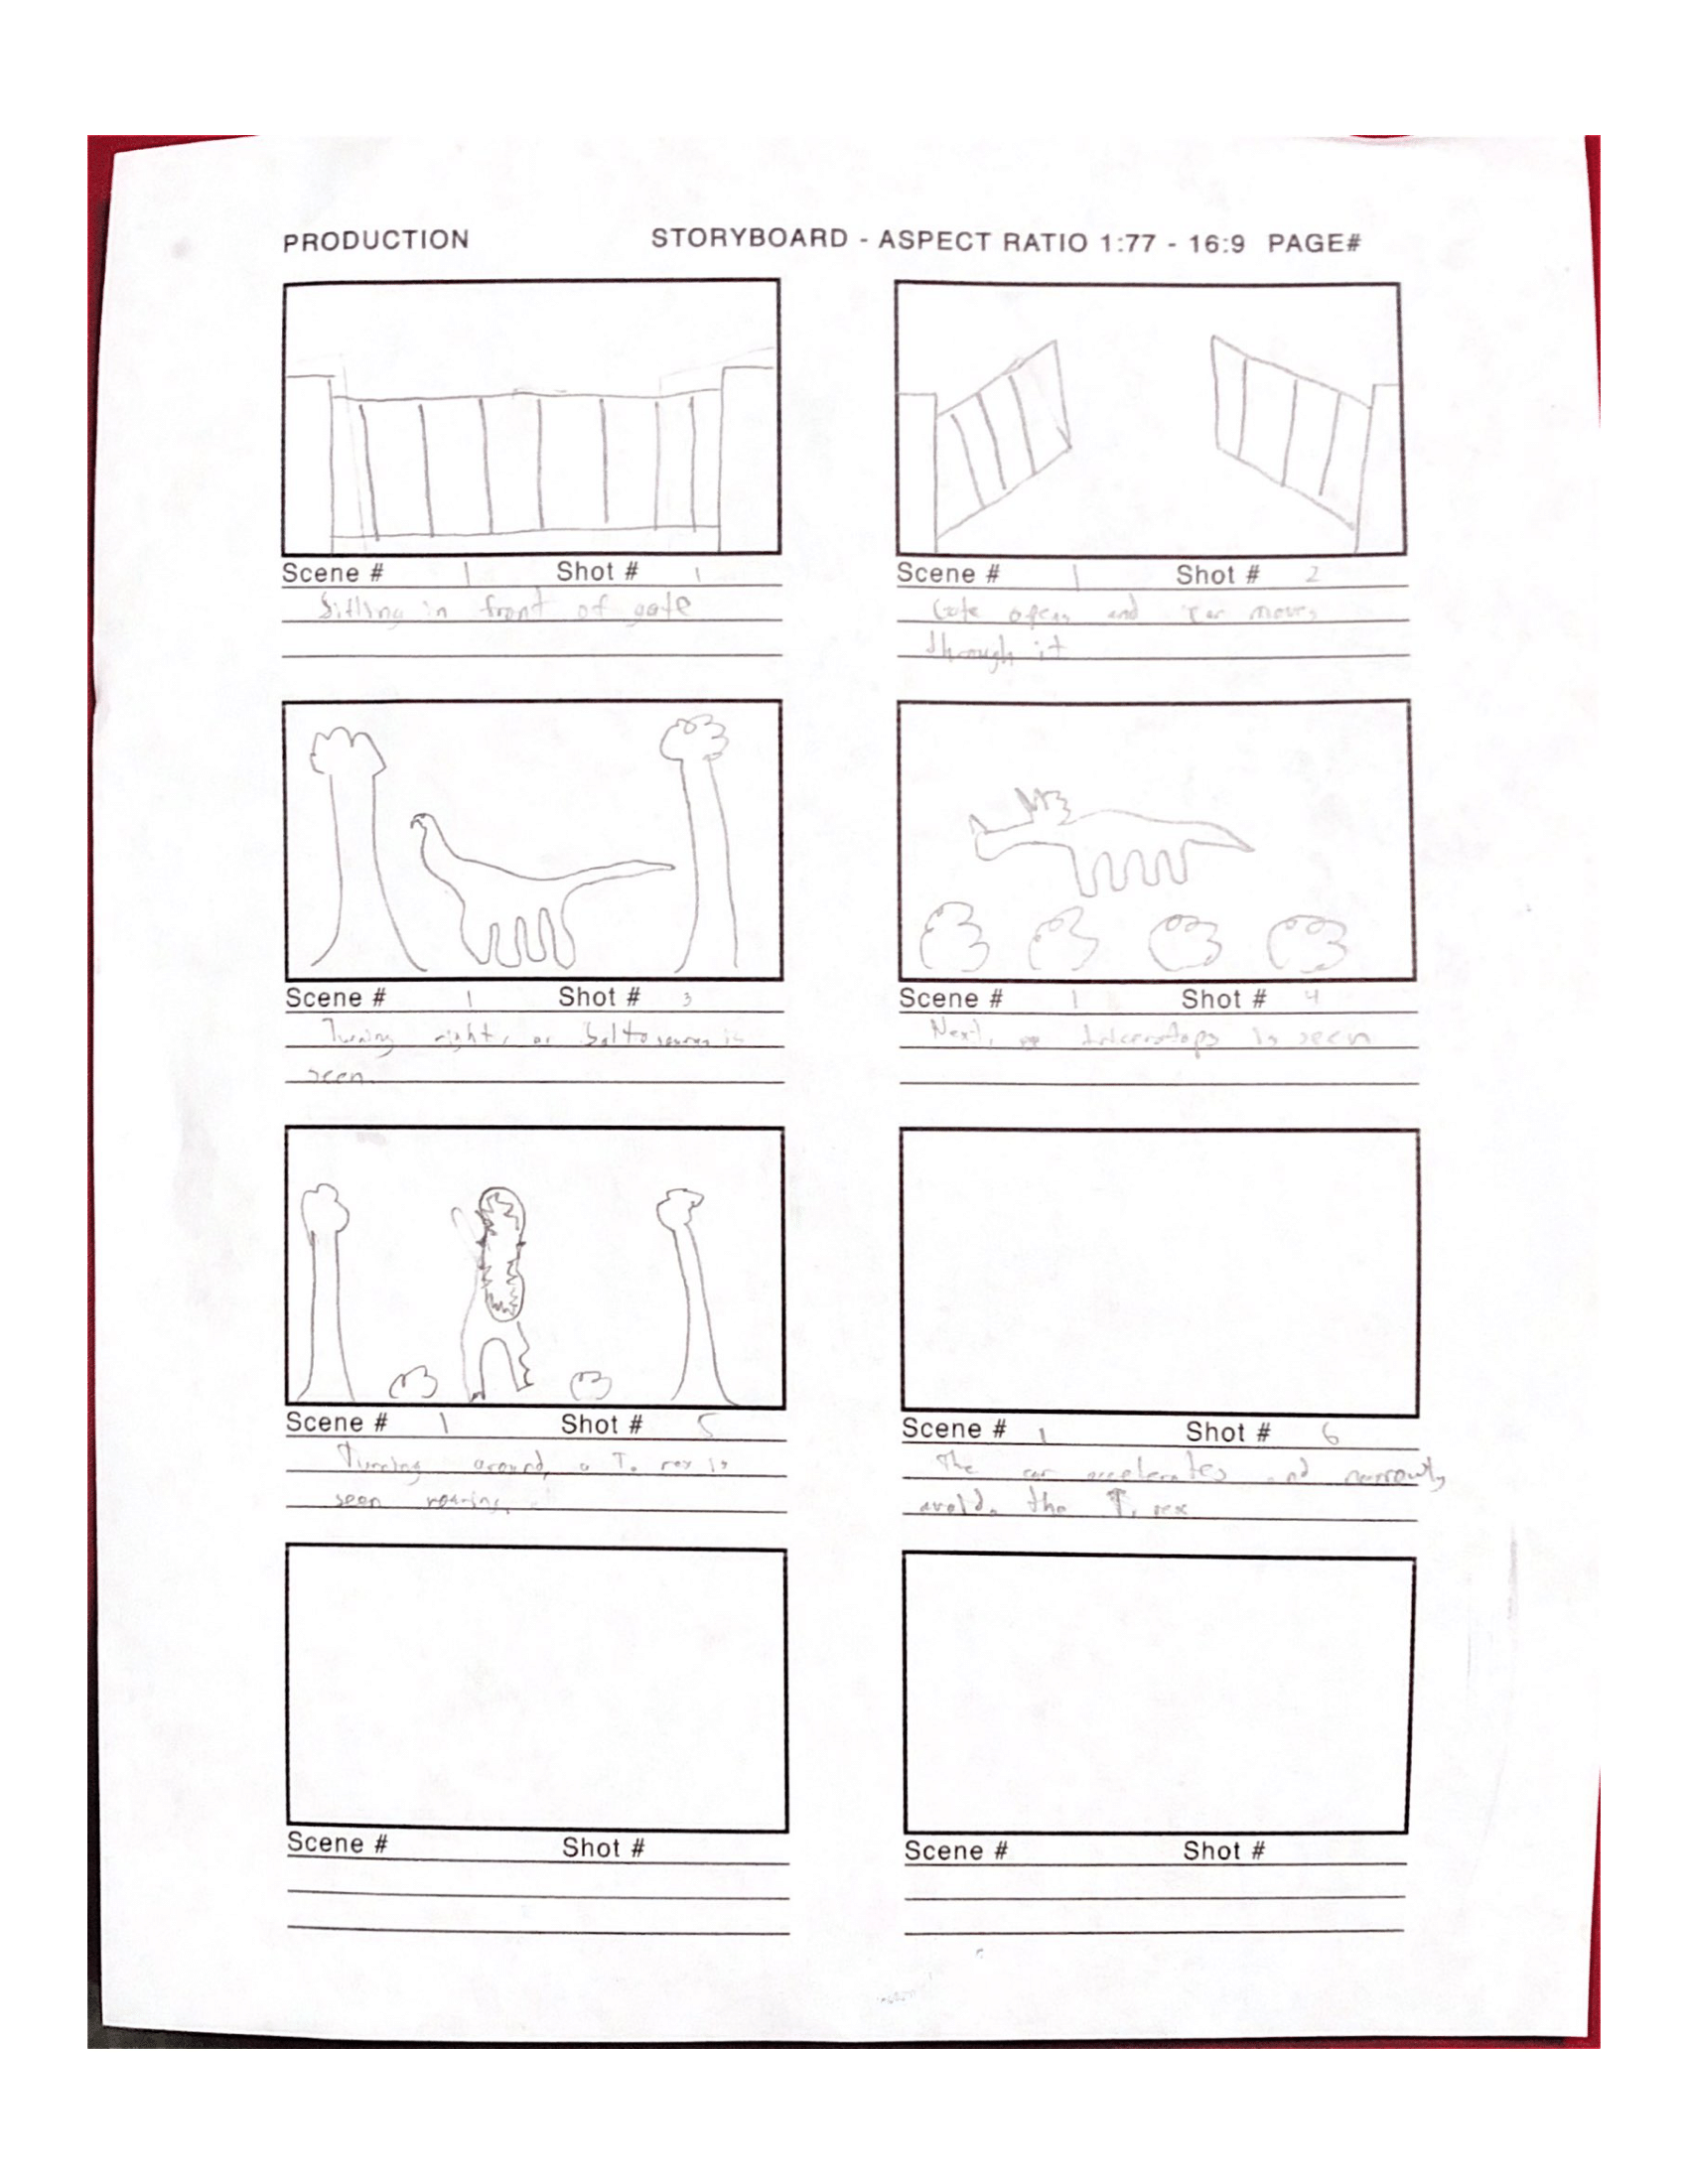 PRODUCTION STORYBOARD - ASPECT RATIO 1:77 - 16:9 PAGE#
Scene # 1 Shot # 1
Sitting in front of gate
Scene # 1 Shot # 2
Gate opens and car moves
through it
Scene # 1 Shot # 3
Turning right, is
seen.
Scene # 1 Shot # 4
Next, is seen
Scene # 1 Shot # 5
Turning around, a T. rex is
seen roaring.
Scene # 1 Shot # 6
The car accelerates and narrowly
avoids the T. rex
Scene # Shot #
Scene # Shot #